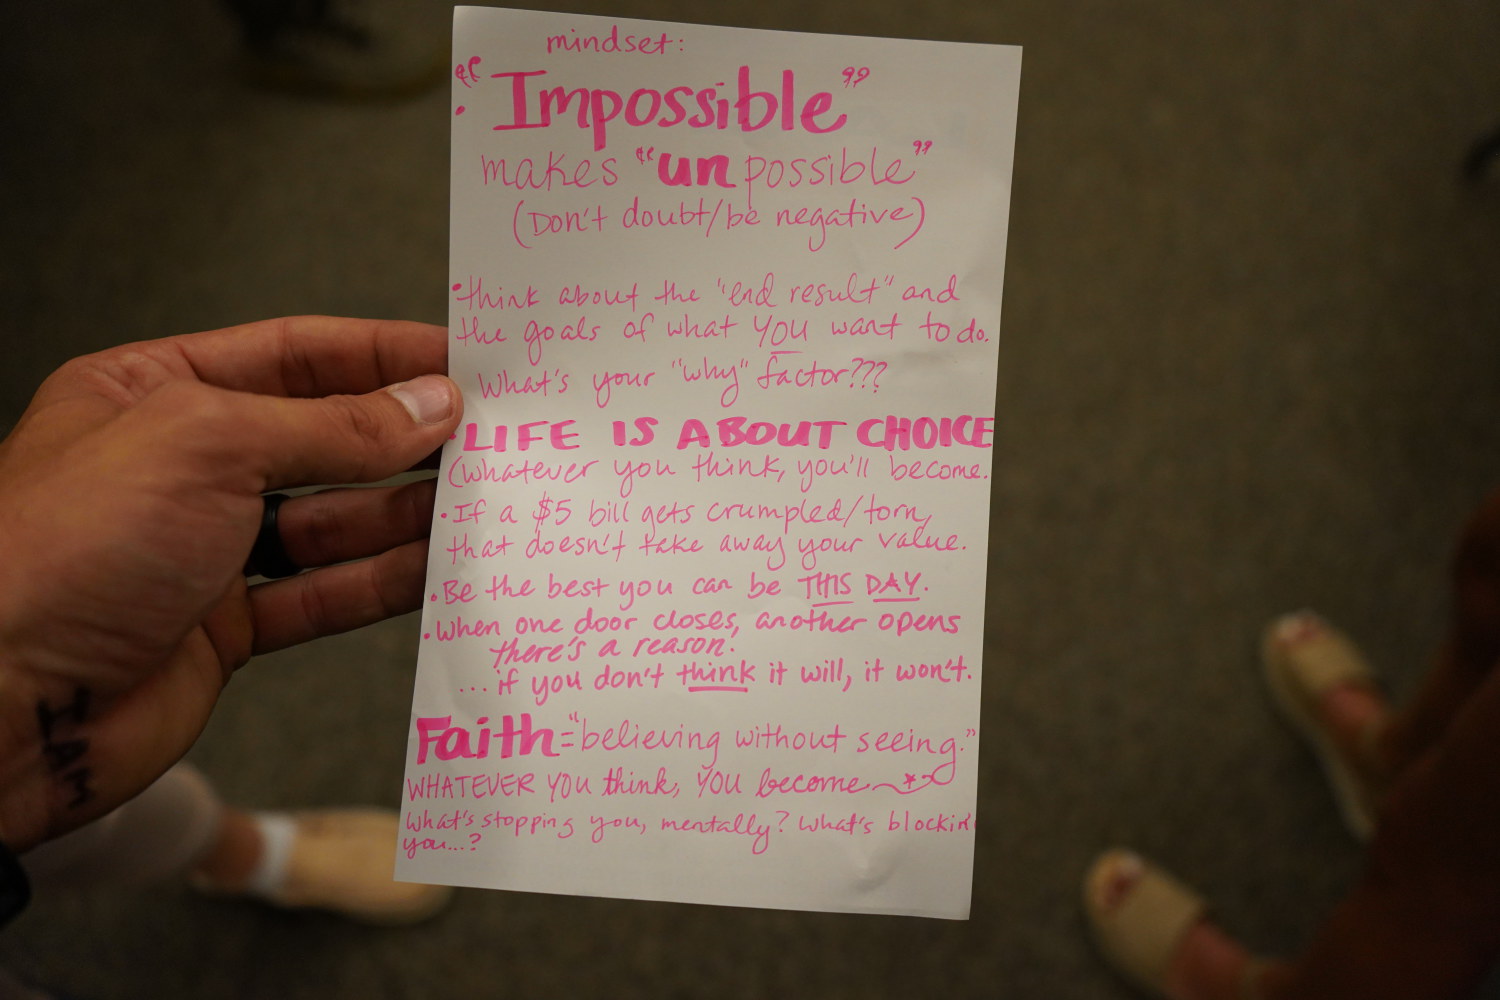 mindset:
• "Impossible"
makes "unpossible"
(Don't doubt/be negative)
• think about the "end result" and
the goals of what YOU want to do.
What's your "why" factor???
• LIFE IS ABOUT CHOICE
(Whatever you think, you'll become.
• If a $5 bill gets crumpled/torn,
that doesn't take away your value.
• Be the best you can be THIS DAY.
• When one door closes, another opens
there's a reason.
... if you don't think it will, it won't.
Faith = "believing without seeing."
WHATEVER YOU think, YOU become
What's stopping you, mentally? What's blockin'
you...?
I AM